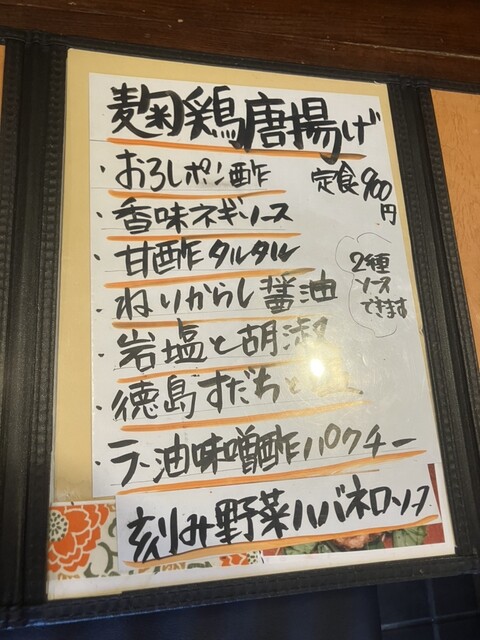 麹鶏唐揚げ
定食900円
・おろしポン酢
・香味ネギソース
・甘酢タルタル
・ねりからし醤油
・岩塩と胡椒
・徳島すだちと
・ラー油味噌酢パクチー
刻み野菜ハバネロソース
2種
ソース
できます